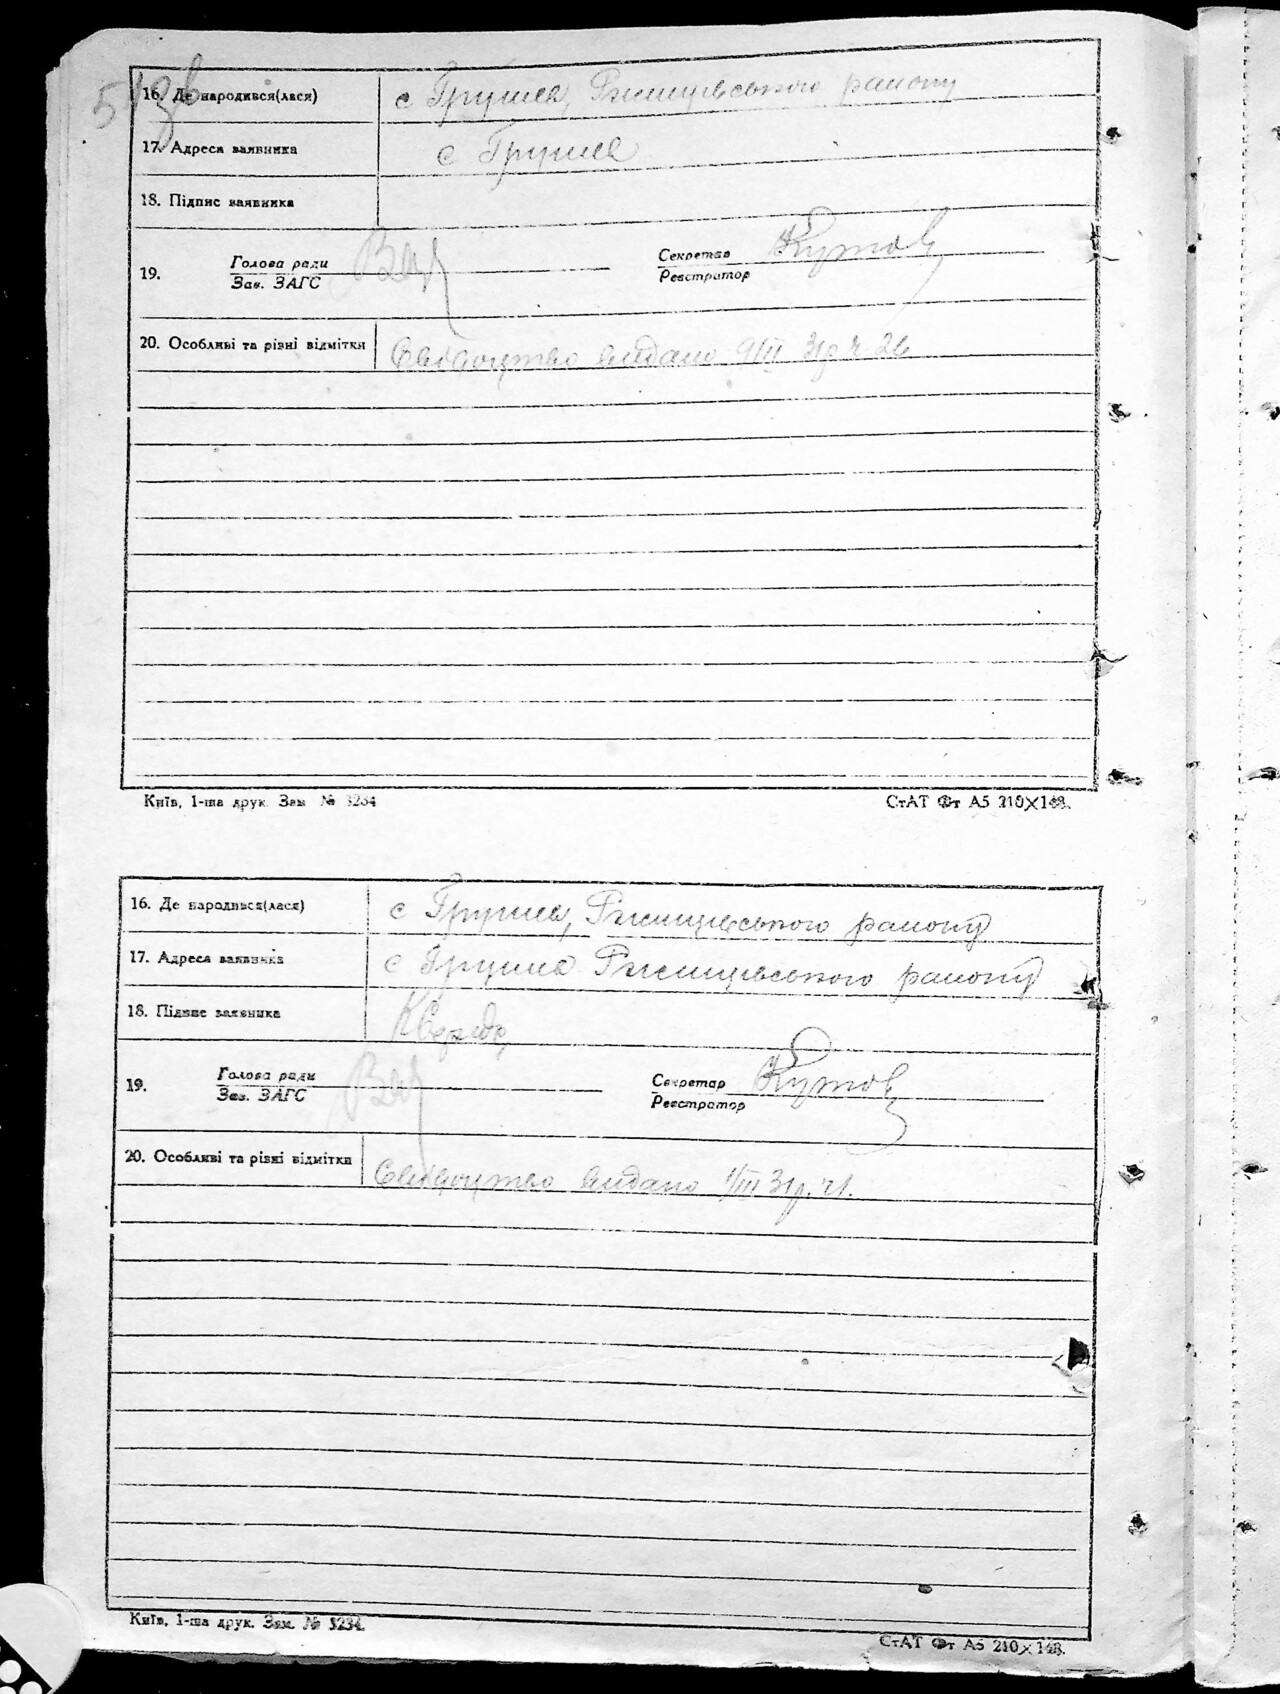 16. Де народився(лася) с Грушев, Ржищівського району
17. Адреса заявника с Грушев
18. Підпис заявника
19. Голова ради Секретар
Зав. ЗАГС Реєстратор
20. Особливі та різні відмітки Свідоцтво видано 9/III 31р. ч. 26
Київ, 1-ша друк. Зам № 3234 СтАТ Фт А5 210×148.
16. Де народився(лася) с Грушев, Ржищівського району
17. Адреса заявника с Грушев Ржищівського району
18. Підпис заявника
19. Голова ради Секретар
Зав. ЗАГС Реєстратор
20. Особливі та різні відмітки Свідоцтво видано 1/III 31р. ч.
Київ, 1-ша друк. Зам. № 3234. СтАТ Фт А5 210×148.